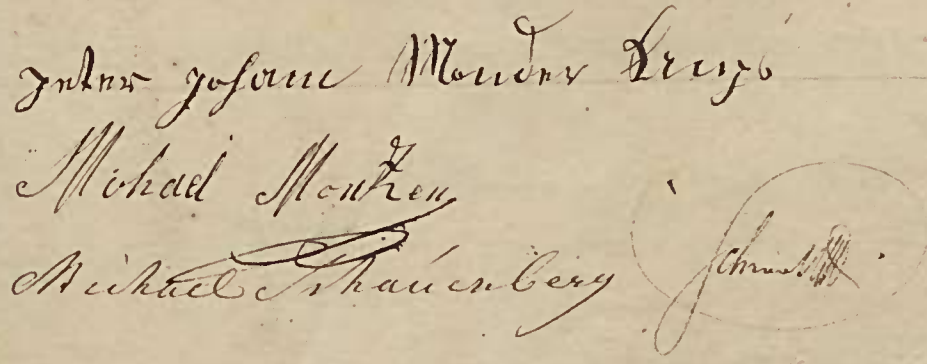 peter johann Monder
Michael Montzen
Michael Schauenberg Schmitz